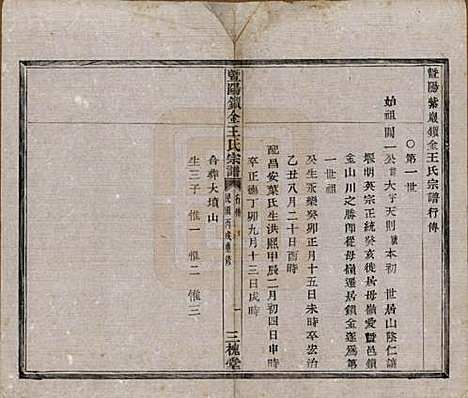 暨陽紫巖鎖金王氏宗譜行傳
○第一世
始祖開一公諱大宇天則號本初 世居山陰仁讓
堰明英宗正統癸亥徙居毋嶺愛暨邑鎖
金山川之勝南從毋嶺遷居鎖金遂為第
一世祖
生永樂癸卯正月十五日未時卒宏治
乙丑八月二十日酉時
配昌安葉氏生洪熙甲辰二月初四日申時
卒正德丁卯九月十三日戌時
暨陽鎖金王氏宗譜 行傳 民國丙戌重修 一 三槐堂
合葬大墳山
生三子 惟一 惟二 惟三